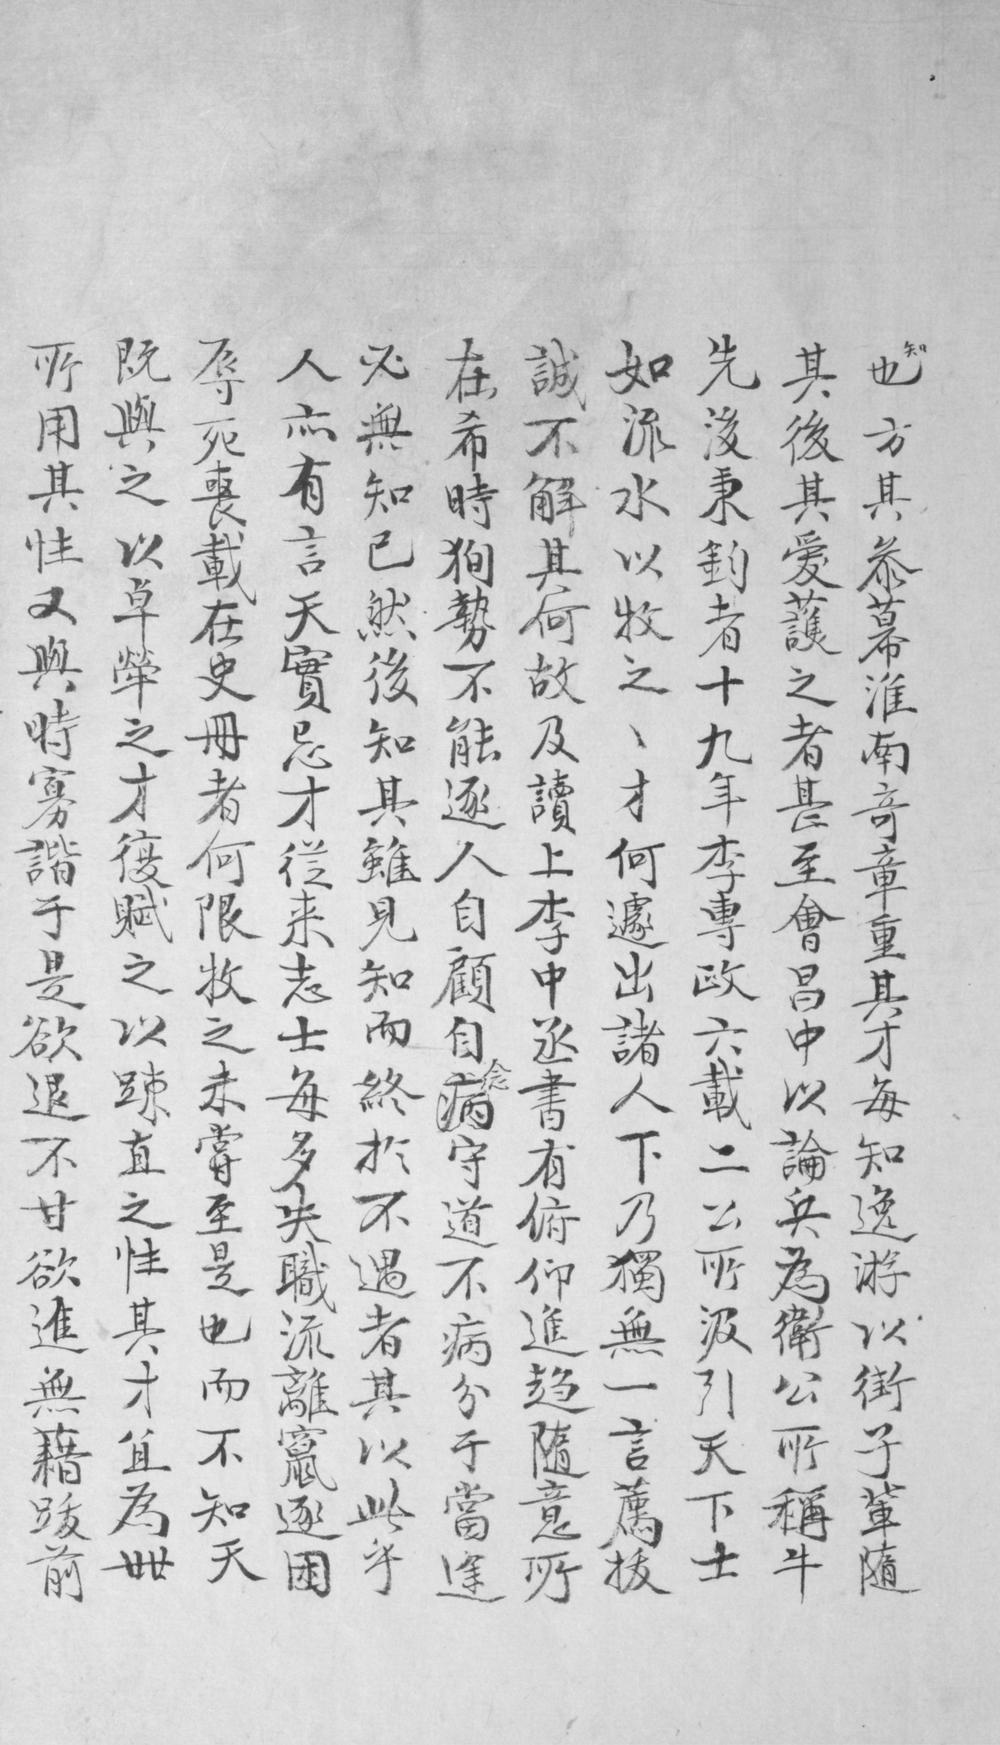 知也方其參幕淮南奇章重其才每知逸游以街子輩隨
其後其愛護之者甚至會昌中以論兵為衛公所稱牛
先後秉鈞者十九年李專政六載二公所汲引天下士
如流水以牧之〻才何遽出諸人下乃獨無一言薦拔
誠不解其何故及讀上李中丞書有俯仰進趋隨意所
在希時狥勢不能逐人自顧自念病守道不病分于當途
必無知己然後知其雖見知而終於不遇者其以此乎
人亦有言天實忌才從来志士每多失職流離竄逐困
辱死喪載在史冊者何限牧之未嘗至是也而不知天
既與之以卓犖之才復賦之以踈直之性其才宜為世
所用其性又與時寡諧于是欲退不甘欲進無藉跋前